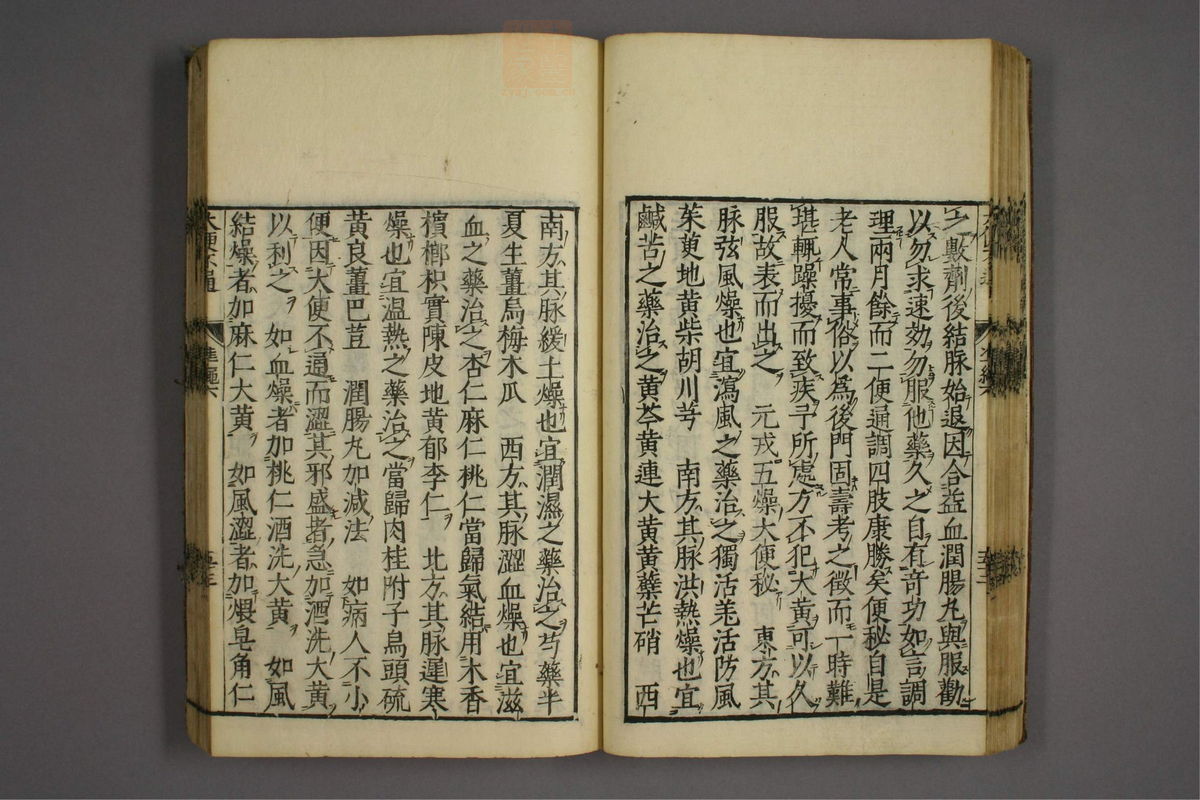 之數劑後結脉始退因合益血潤腸丸與服勸
以勿求速効勿服他藥久之自有竒功如言調
理兩月餘而二便通調四肢康勝矣便秘自是
老人常事俗以爲後門固壽考之徵而一時難
堪輒躁擾而致疾予所處方不犯大黃可以久
服故表而出之　元戎五燥大便秘　東方其
脉弦風燥也宜瀉風之藥治之獨活羌活防風
茱萸地黃柴胡川芎　南方其脉洪熱燥也宜
鹹苦之藥治之黃芩黃連大黃黃蘗芒硝　西
南方其脉緩土燥也宜潤濕之藥治之芍藥半
夏生薑烏梅木瓜　西方其脉澀血燥也宜滋
血之藥治之杏仁麻仁桃仁當歸氣結用木香
檳榔枳實陳皮地黃郁李仁　北方其脉遲寒
燥也宜溫熱之藥治之當歸肉桂附子烏頭硫
黃良薑巴荳　潤腸丸加減法　如病人不小
便因大便不通而澀其邪盛者急加酒洗大黃
以利之　如血燥者加桃仁酒洗大黃　如風
結燥者加麻仁大黃　如風澀者加煨皂角仁
大便不通
準繩六